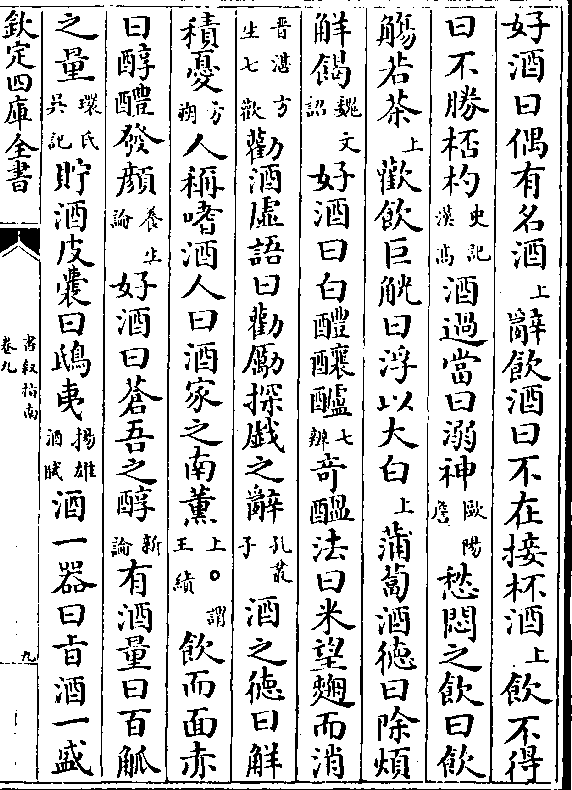 好酒曰偶有名酒上辭飲酒曰不在接杯酒上飲不得
曰不勝桮杓史記漢高酒過當曰溺神歐陽詹愁悶之飲曰飲
觴若茶上歡飲巨觥曰浮以大白上蒲萄酒德曰除煩
解餲魏文詔好酒曰白醴釀醯七辨奇醖法曰米望麴而消
晉湛方生七歡勸酒虛語曰勸勵探戲之辭孔叢子酒之德曰解
積憂方朔人稱嗜酒人曰酒家之南董上〇謂王績飲而面赤
曰醇醴發顔養生論好酒曰蒼吾之醇新論有酒量曰百觚
之量環氏吳記貯酒皮囊曰鴟夷揚雄酒賦酒一器曰酒一盛
欽定四庫全書
書叙指南
卷九
九